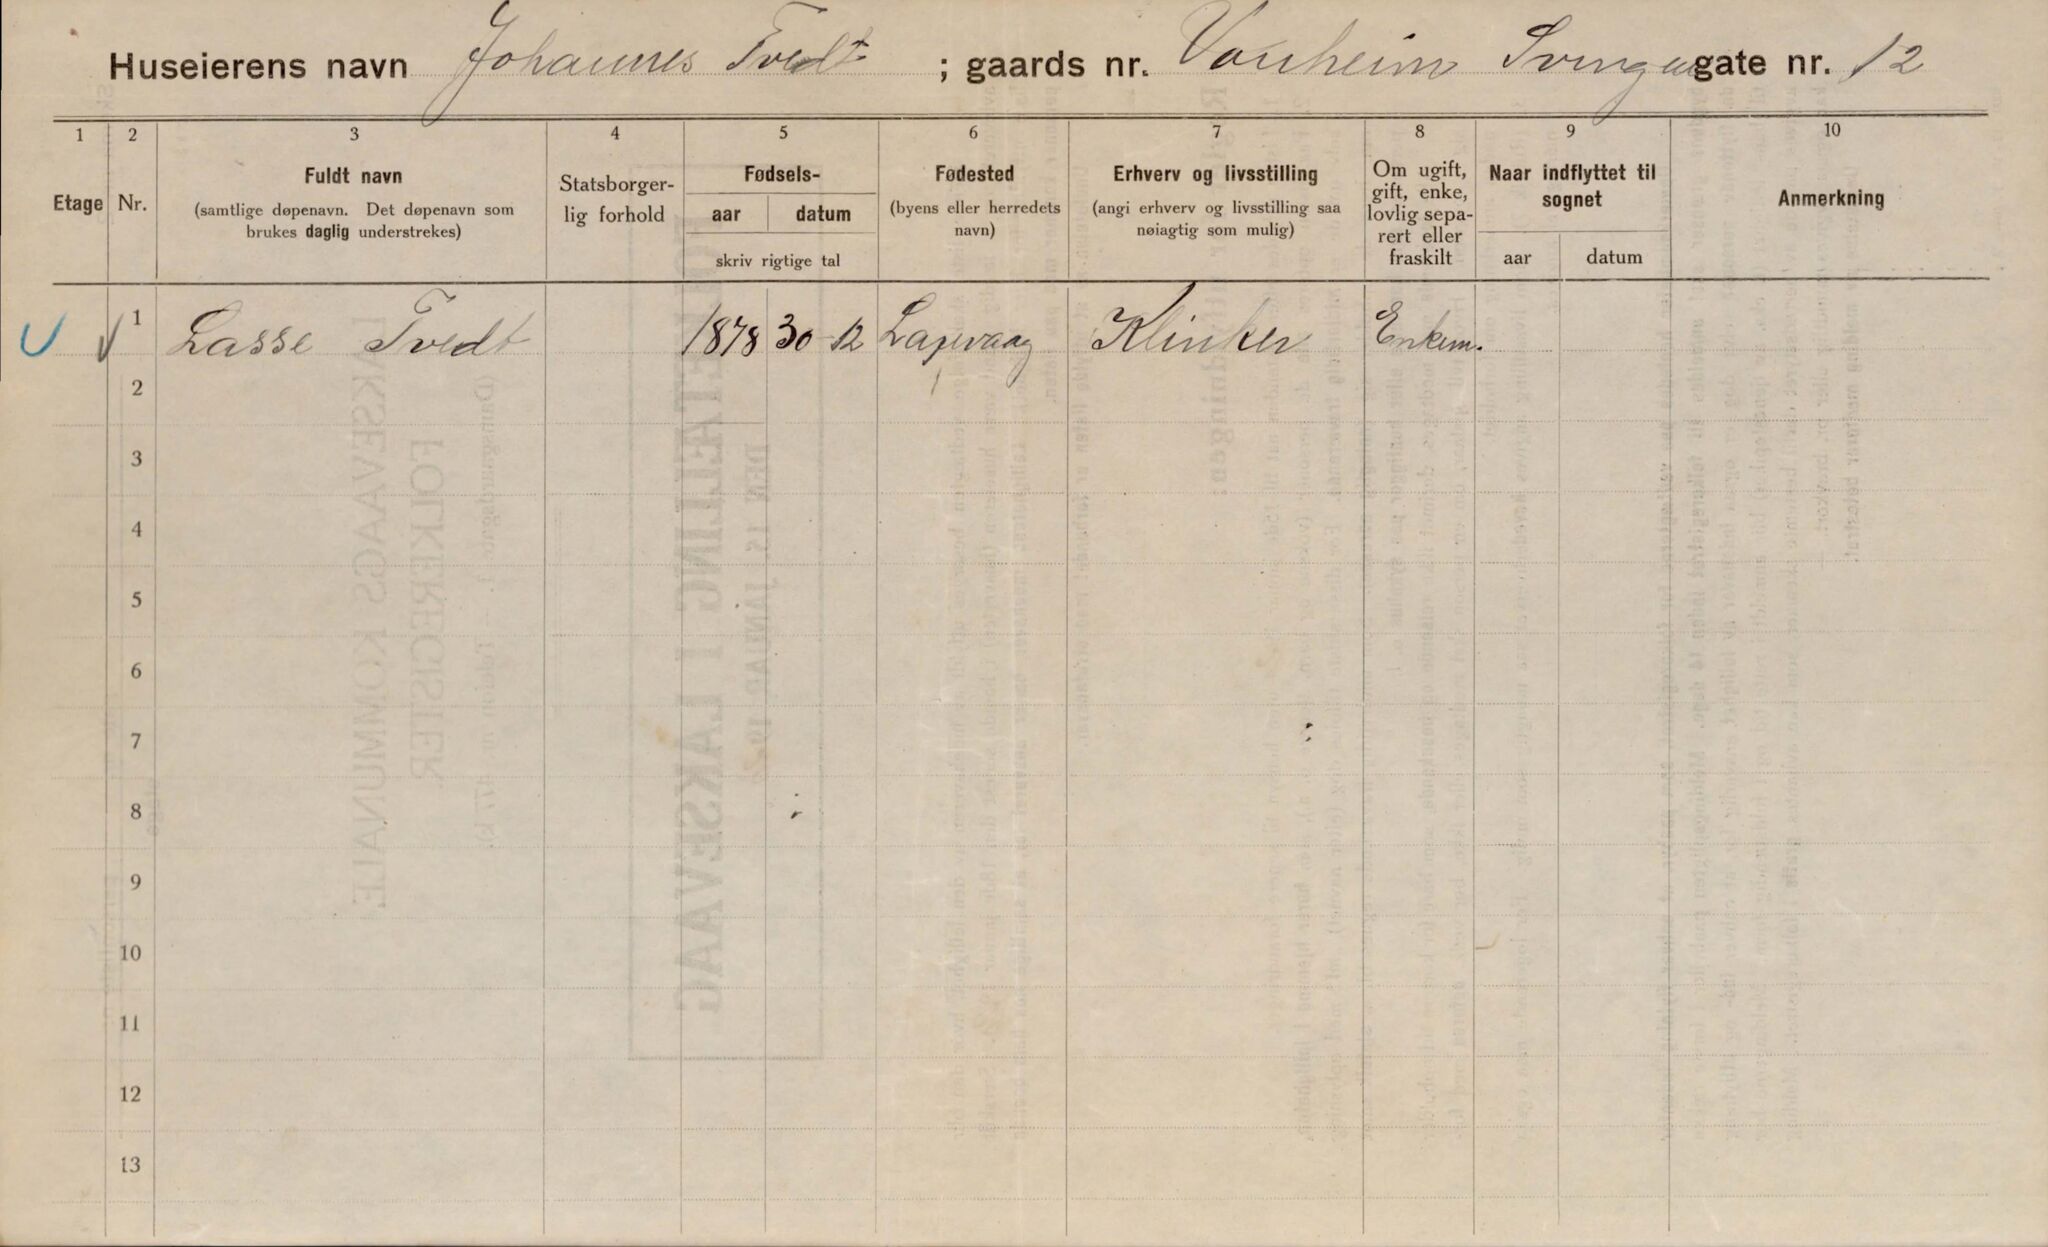 Huseierens navn Johannes Tvedt ; gaards nr. Vonheim Svingen gate nr. 12
1 2 3 4 5 6 7 8 9 10
Etage Nr. Fuldt navn (samtlige døpenavn. Det døpenavn som brukes daglig understrekes) Statsborgerlig forhold Fødsels- aar datum skriv rigtige tal Fødested (byens eller herredets navn) Erhverv og livsstilling (angi erhverv og livsstilling saa nøiagtig som mulig) Om ugift, gift, enke, lovlig separert eller fraskilt Naar indflyttet til sognet aar datum Anmerkning
1 Lasse Tvedt 1878 30-12 Laxevaag Klinker Enkem.
2
3
4
5
6
7
8
9
10
11
12
13